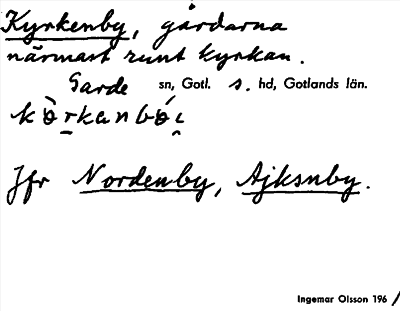 Kyrkenby, gårdarna
närmast runt kyrkan.
Garde sn, Gotl. s. hd, Gotlands län.
Jfr Nordenby, Ajksnby.
Ingemar Olsson 196